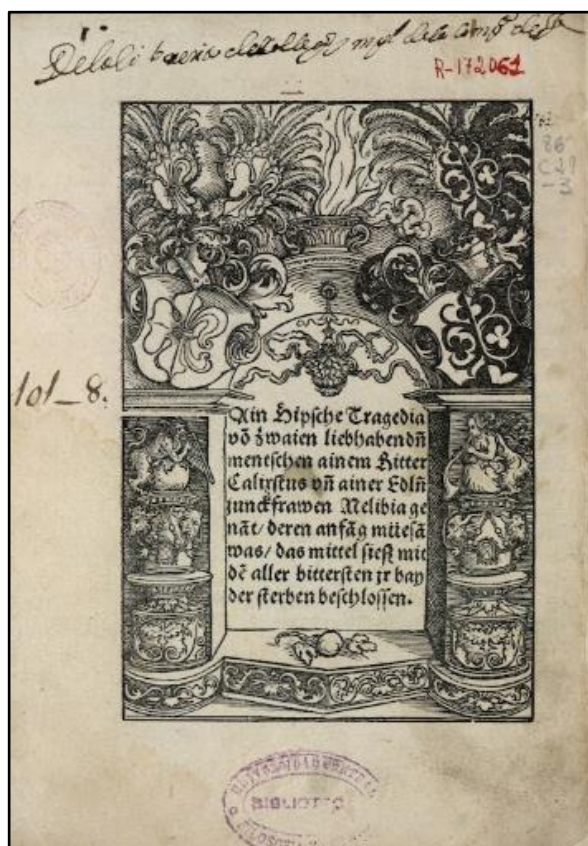 R-172061
86
101-8.
Ain Hipsche Tragedia
võ zwaien liebhabendñ
mentschen ainem Ritter
Calixstus uñ ainer Edlñ
junckfrawen Melibia ge
nãt/ deren anfãg müesã
was/ das mittel sieß mit
dẽ aller bittersten jr bay
der sterben beschlossen.
BIBLIOTECA